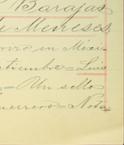 Barajas
de Meneses,
en Méxi
tiembre = Luis
= Un sello
Guerrero = Nota